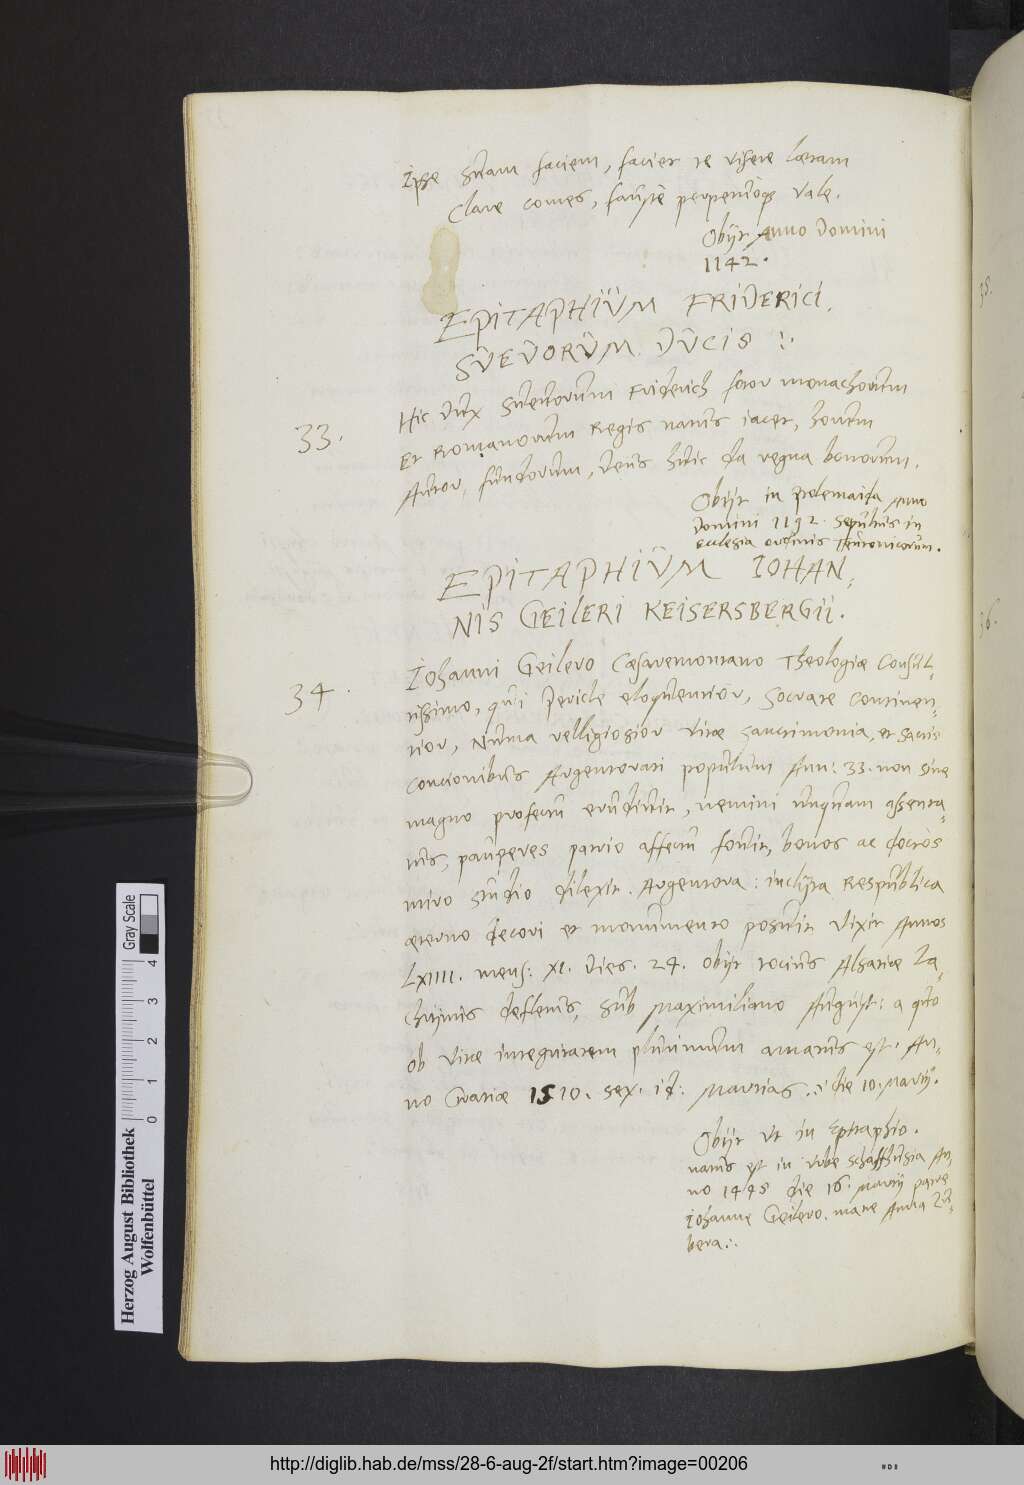 Ipse suam faciem, faciet te visere laetam
Clare comes, fauste perpetuoq; vale.
Obijt Anno Domini
1142.
EPITAPHIUM FRIDERICI
SUEVORUM DUCIS
33.
Hic dux Sueuorum Friderich fautor monachorum
Et Romanorum Regis natus iacet, horum
Autor, fundorum, deus huic da regna bonorum.
Obijt in ptolemaida Anno
Domini 1192. Sepultus in
ecclesia ordinis Teutonicorum.
EPITAPHIUM IOHAN,
NIS GEILERI KEISERSBERGII.
34.
Iohanni Geilero Caesaremontano Theologiae Consul-
tissimo, qui Pericle eloquentior, Socrate continen-
tior, Numa relligiosior vitae sanctimonia, et sacris
concionibus Argentorati populum Ann: 33. non sine
magno profectu erudiuit, nemini unquam assenta-
tus, pauperes patrio affectu fouit, bonos ac doctos
miro studio dilexit. Argentora: inclyta Respublica
aeterno decori et monumento posuit vixit Annos
LXIIII. mens: XI. Dies. 24. obijt totius Alsatiae La-
chrijmis defletus, sub Maximiliano August: a quo
ob vitae integritatem plurimum amatus est. An-
no Gratiae 1510. sex. id: Martias. die 10. Martij.
Obijt vt in Eptaphio.
natus est in vrbe Schaffhusia An-
no 1445 die 16 Martij patre
Iohanne Geilero. matre Anna Zu-
bera.
35.
36.
Herzog August Bibliothek
Wolfenbüttel
Gray Scale
0 1 2 3 4
http://diglib.hab.de/mss/28-6-aug-2f/start.htm?image=00206